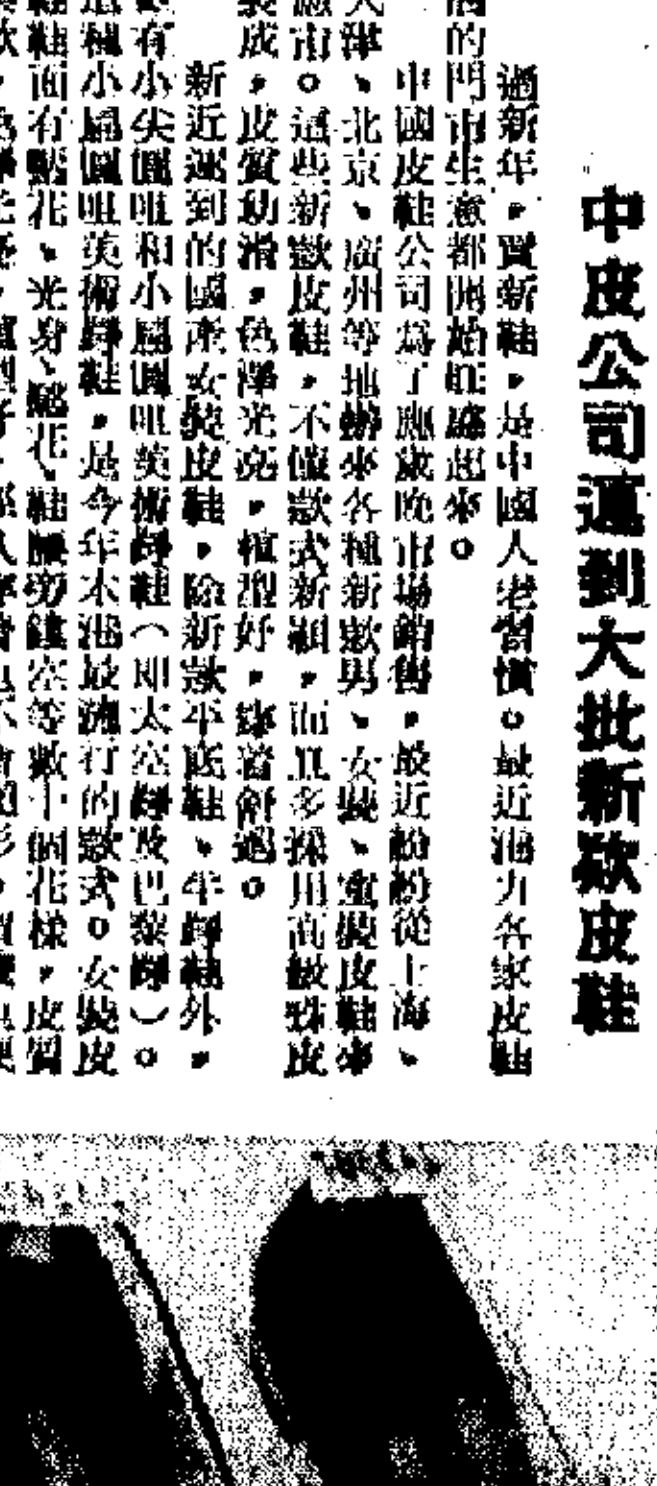 中皮公司運到大批新欵皮鞋
過新年,買新鞋,是中國人老習慣。最近港九各家皮鞋
的門市生意都開始旺盛起來。
中國皮鞋公司為了應歲晚市塲銷售,最近紛紛從上海、
天津、北京、廣州等地辦來各種新欵男、女裝、童裝皮鞋來
應市。這些新欵皮鞋,不僅欵式新穎,而且多採用高級珠皮
製成,皮質幼滑,色澤光亮,楦型好,穿着舒適。
新近運到的國產女裝皮鞋,除新欵平底鞋、半踭鞋外,
有小尖圓咀和小扁圓咀美術踭鞋(即太空踭及巴黎踭)。
這種小扁圓咀美術踭鞋,是今年本港最流行的欵式。女裝皮
鞋鞋面有點花、光身、鬆花、鞋腰旁鏤空等數十個花樣,皮質